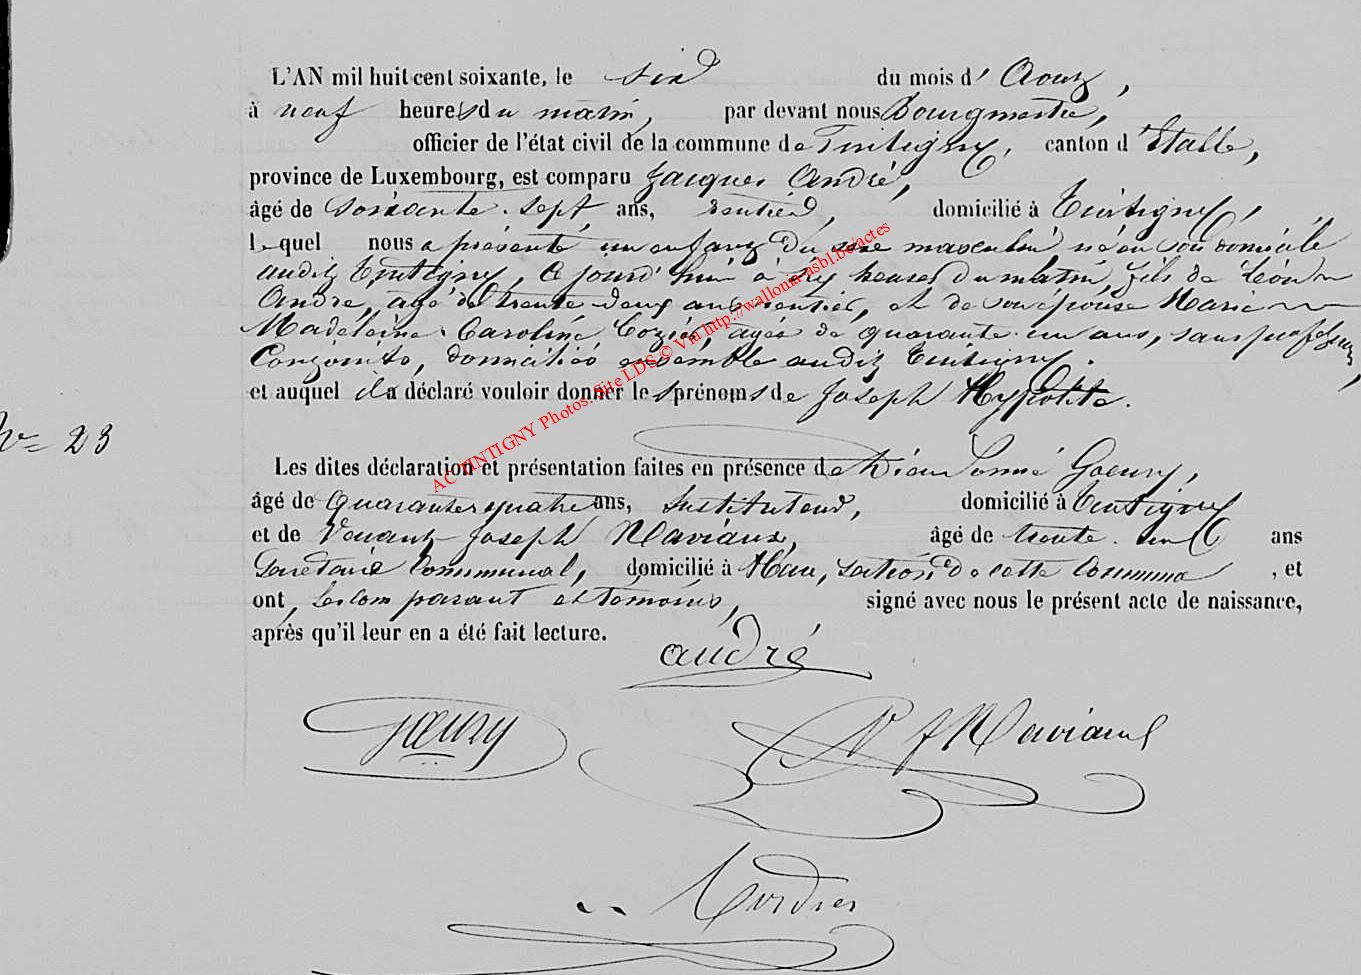 L'AN mil huit cent soixante, le six du mois d' Aout,
à neuf heures du matin, par devant nous Bourgmestre,
officier de l'état civil de la commune de Tintigny, canton d'Etalle,
province de Luxembourg, est comparu Jacques André,
âgé de soixante-sept ans, rentier, domicilié à Tintigny,
lequel nous a présenté un enfant du sexe masculin né en son domicile
audit Tintigny, ce jourd'hui à six heures du matin, fils de Léon
André, agé de trente deux ans rentier, et de son épouse Marie
Madeleine Caroline agée de quarante un ans, sans profession,
Conjoints, domiciliés ensemble audit Tintigny.
et auquel il a déclaré vouloir donner les prénoms de Joseph Hypolite.
N° 23
Les dites déclaration et présentation faites en présence de Dieudonné Goeury,
âgé de quarante quatre ans, Instituteur, domicilié à Tintigny
et de Venant Joseph Maviaux, âgé de trente-un ans
Secrétaire Communal, domicilié à section de cette Commune, et
ont, les comparant et témoins, signé avec nous le présent acte de naissance,
après qu'il leur en a été fait lecture.
andré
Goeury
V J Maviaux
AC TINTIGNY Photos: Site LDS © Via http://wallonia-asbl.be/actes